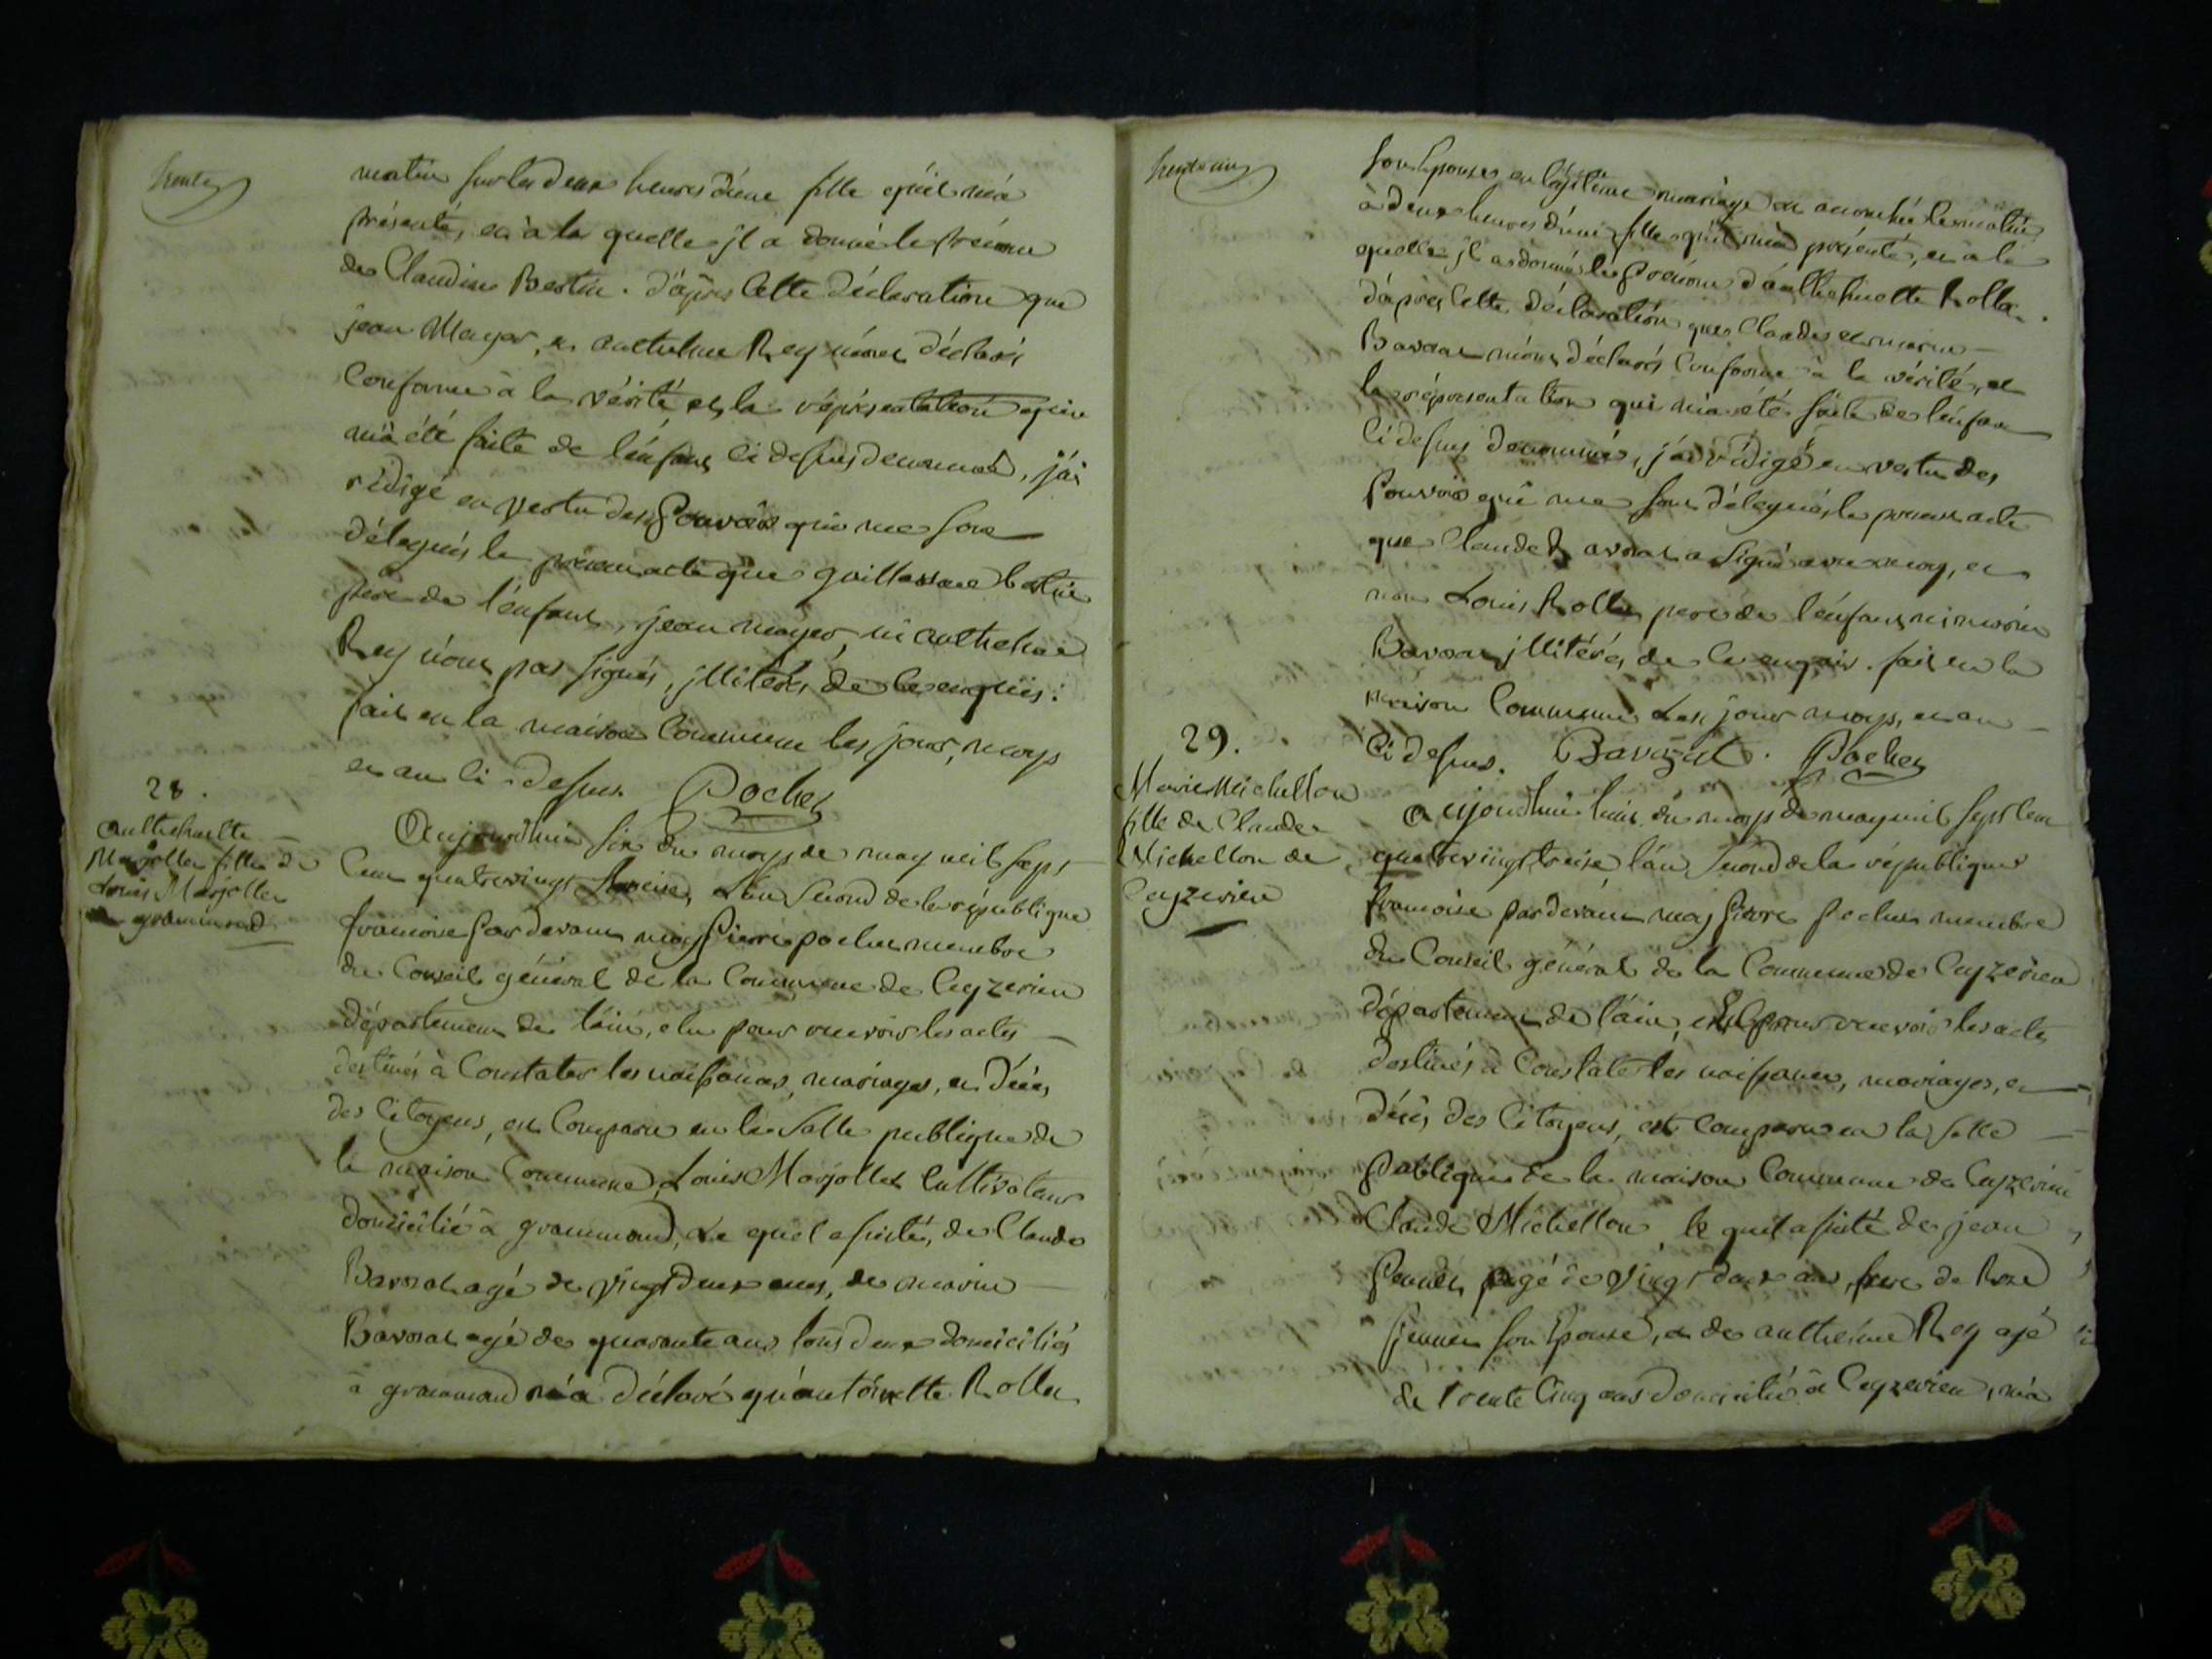 trente
matin sur les deux heures d'une fille qu'il m'a
présenté, et à la quelle jl a donné le prénom
de Claudine Bertin. d'après Cette déclaration que
jean Mayer, et anthelme Rey m'ont déclaré
Conforme à la vérité et la répresentation qui
m'a été faite de l'enfant ci dessus denommé, j'ai
rédigé en vertu des Pouvoirs qui me sont
délegués le présent acte que guillaume bertin
père de l'enfant, jean mayer, ni anthelme
Rey n'ont pas signés, jlliterés de le enquis.
fait en la maison Commune les jour, moys
et an ci-dessus. Pochet
28.
anthelmette
Marjollet fille de
Louis Marjollet
grammond
Aujourdhui six du moys de may mil sept
Cent quatrevingt treize, L'an second de la république
francoise Pardevant moy Pierre pochet membre
du Conseil général de la Commune de Ceyzerieu
département de l'ain, elu pour recevoir les actes
destinés à Constater les naissances, mariages, et Décès
des Citoyens, est Comparu en la Salle publique de
la maison Commune, Louis Marjollet Cultivateur
domicilié à grammond, Le quel assisté, de Claude
Bavozat agé de vingt deux ans, de marin
Bavozat agé de quarante ans tous deux domiciliés
à grammond m'a déclaré qu'antoinette Rollet
trente un
son Epouse en légitime mariage est accouchée le matin
à deux heures d'une fille qu'il m'a présenté, et à la
quelle jl a donné le Prénom d'anthelmette Rollet.
d'après Cette déclaration que Claude et marin
Bavozat m'ont déclaré Conforme à la vérité, et
la répresentation qui m'a été faite de l'enfant
Ci dessus denommé, j'ai rédigé en vertu des
Pouvoirs qui me sont délegués, le présent acte
que Claude Bavozat a signé avec moy, et
non Louis Rollet pere de l'enfant, ni marin
Bavozat jllitérés, de le enquis. fait en la
maison Commune Les jour moys, et an
Ci dessus. Bavozat. Pochet
29.
Marie Michellon
fille de Claude
Michellon de
Ceyzerieu
Aujourdhui huit du moys de may mil sept Cent
quatrevingt treise, l'an second de la république
francoise pardevant moy Pierre pochet membre
du Conseil général de la Commune de Ceyzerieu
département de l'ain, elu pour recevoir les actes
destinés à Constater les naissances, mariages, et
décès des Citoyens, est Comparu en la salle
Publique de la maison Commune de Ceyzerieu
Claude Michellon, le quel assisté de jean
agé de vingt deux ans, frere de Roze
son Epouse, et de anthelme Rey agé
de trente Cinq ans domicilié à Ceyzerieu, m'a